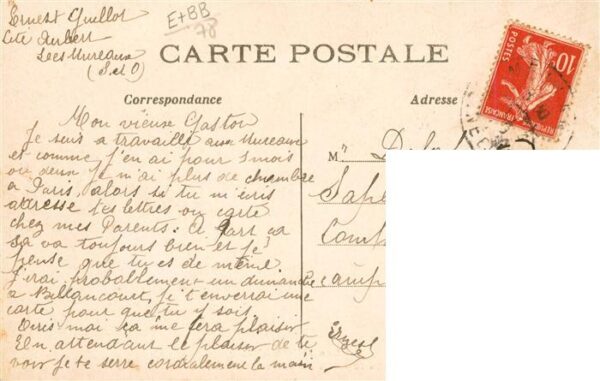 Ernest Guillot
Cité Aubert
Les Mureaux
(S et O)
E+BB
78
CARTE POSTALE
Correspondance
Adresse
POSTES
10
REPUBLIQUE FRANÇAISE
Mon vieux Gaston
Je suis a travaille aux Mureaux
et comme j'en ai pour 1 mois
ou deux je n'ai plus de chambre
a Paris, alors si tu m'écris
adresse tes lettres ou carte
chez mes Parents: a part ça
sa va toujours bien et je
pense que tu es de même.
J'irai probablement un dimanche
a Billancourt, je t'enverrai une
carte pour que tu y sois
Ecris-moi ça me fera plaisir
En attendant le plaisir de te
voir je te serre cordialement la main
Ernest
M
Sape
Comp
camp